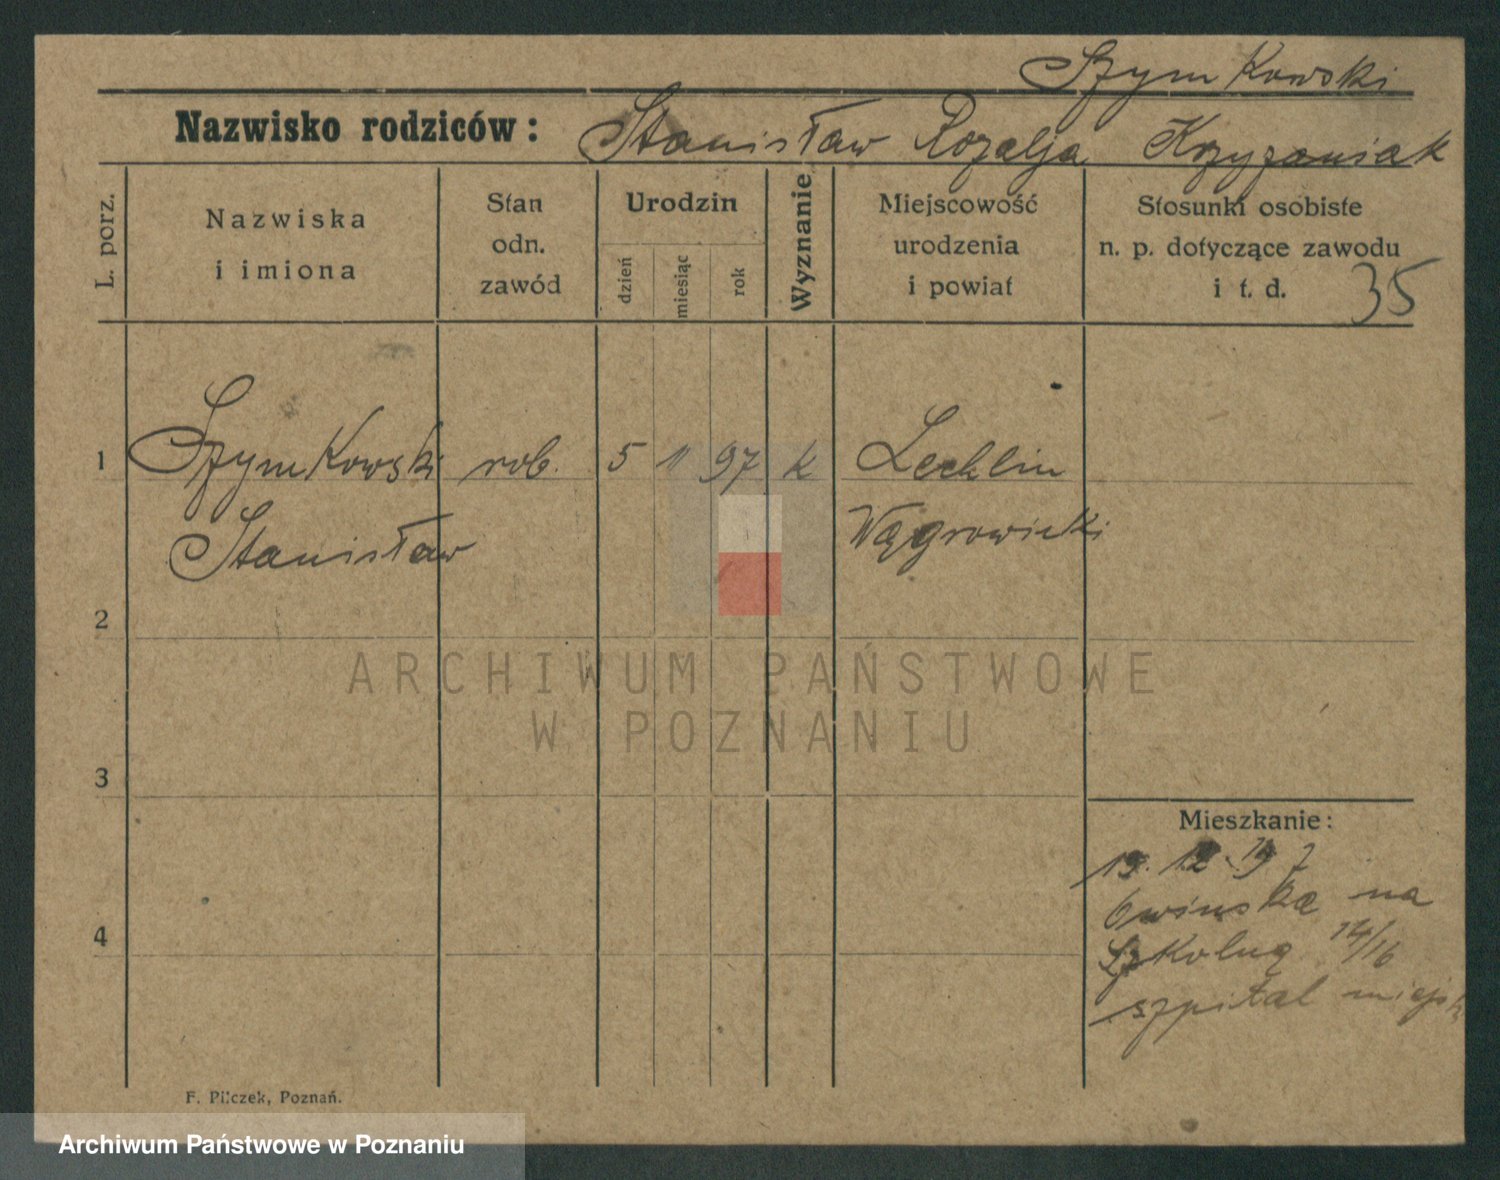 Szymkowski
Nazwisko rodziców: Stanisław Rozalja Krzyżaniak
L. porz.
Nazwiska
i imiona
Stan
odn.
zawód
Urodzin
dzień
miesiąc
rok
Wyznanie
Miejscowość
urodzenia
i powiat
Stosunki osobiste
n. p. dotyczące zawodu
i t. d. 35
1 Szymkowski rob. 5 11 97 k Lechlin
Stanisław Wągrowiecki
2
ARCHIWUM PAŃSTWOWE
W POZNANIU
3
Mieszkanie:
19. 12.
Owińska na
4
Szkolną 14/16
szpital miejsk
F. Pilczek, Poznań.
Archiwum Państwowe w Poznaniu